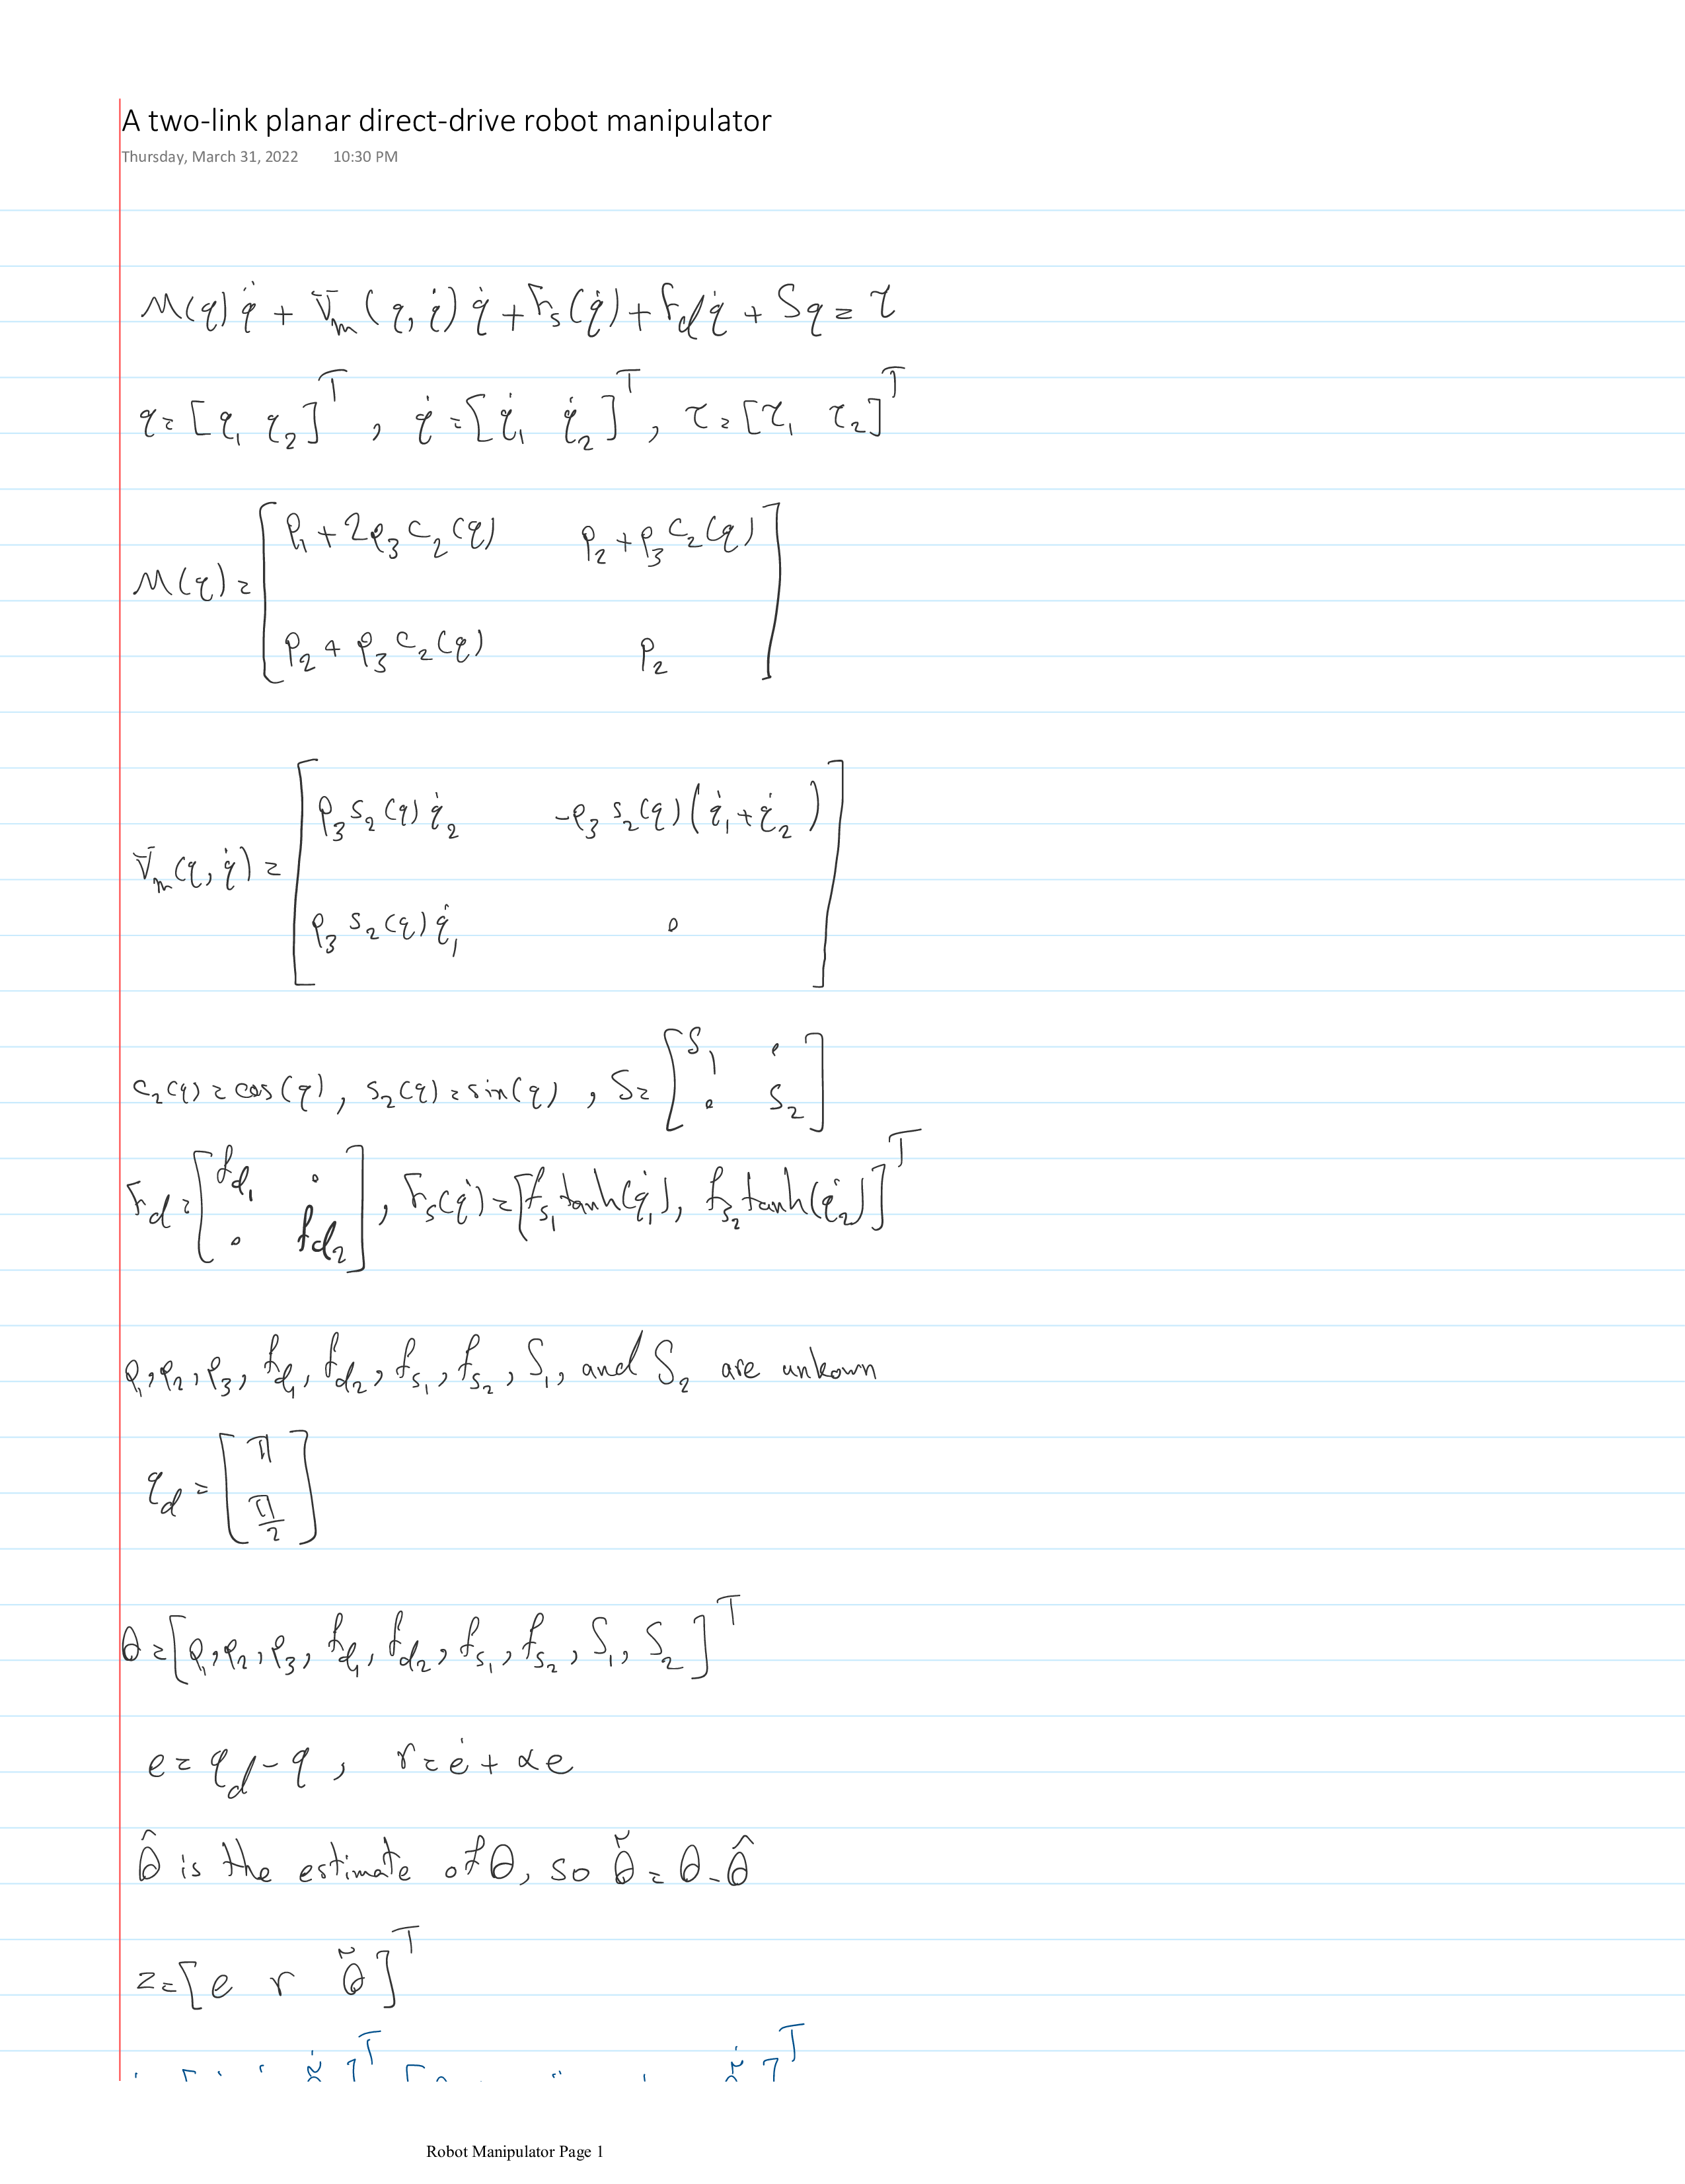 A two-link planar direct-drive robot manipulator
Thursday, March 31, 2022 10:30 PM
M(q)q̈ + V̄_m(q, q̇)q̇ + F_s(q̇) + F_d q̇ + Sq = τ
q = [q₁ q₂]ᵀ , q̇ = [q̇₁ q̇₂]ᵀ, τ = [τ₁ τ₂]ᵀ
M(q) = [ p₁ + 2p₃c₂(q) p₂ + p₃c₂(q)
p₂ + p₃c₂(q) p₂ ]
V̄_m(q, q̇) = [ p₃s₂(q)q̇₂ -p₃s₂(q)(q̇₁ + q̇₂)
p₃s₂(q)q̇₁ 0 ]
c₂(q) = cos(q), s₂(q) = sin(q) , S = [ S₁ 0
0 S₂ ]
F_d = [ f_d₁ 0
0 f_d₂ ] , F_s(q̇) = [f_s₁tanh(q̇₁), f_s₂tanh(q̇₂)]ᵀ
p₁, p₂, p₃, f_d₁, f_d₂, f_s₁, f_s₂, S₁, and S₂ are unkown
q_d = [ π
π/2 ]
θ = [p₁, p₂, p₃, f_d₁, f_d₂, f_s₁, f_s₂, S₁, S₂]ᵀ
e = q_d - q , r = ė + αe
θ̂ is the estimate of θ, so θ̃ = θ - θ̂
z = [e r θ̃]ᵀ
Robot Manipulator Page 1